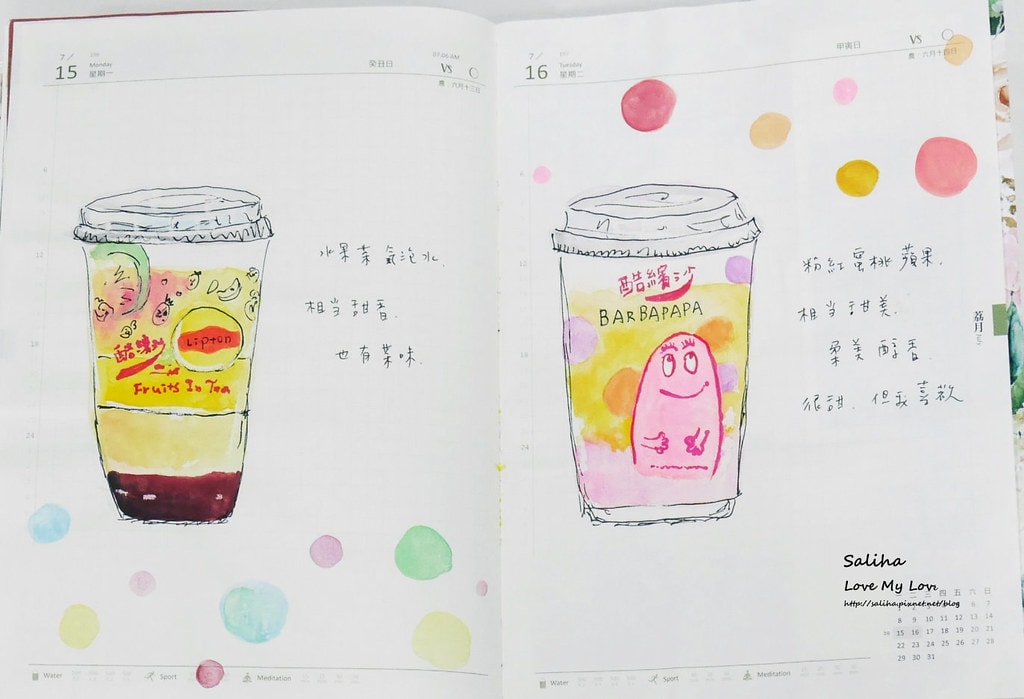 7/
15
Monday
星期一
癸丑日
VS
農 六月十三日
水果茶氣泡水.
相当甜香.
也有茶味.
Lipton
酷繽沙
Fruits In Tea
Water
Sport
Meditation
7/
16
Tuesday
星期二
甲寅日
VS
農 六月十四日
酷繽沙
BARBAPAPA
粉紅蜜桃蘋果.
相当甜美.
柔美醇香.
很甜. 但我喜歡
荔月
6
12
18
24
Saliha
Love My Lov
http://saliha.pixnet.net/blog
四 五 六 日
6 7
8 9 10 11 12 13 14
15 16 17 18 19 20 21
22 23 24 25 26 27 28
29 30 31
Water
Sport
Meditation